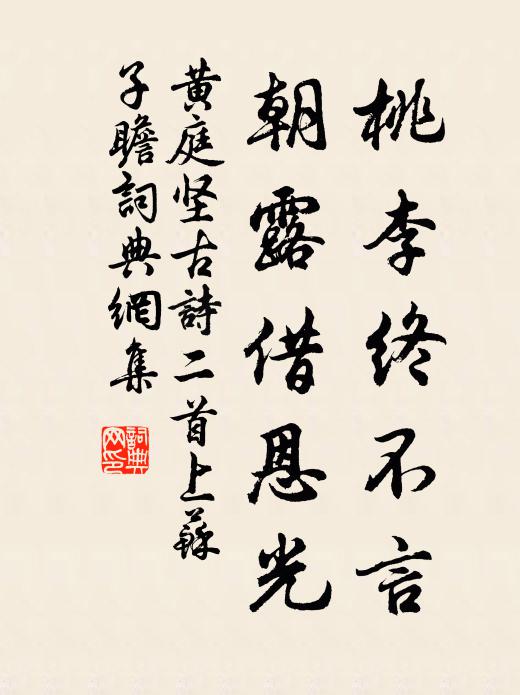 桃李终不言
朝露借恩光
黄庭坚古詩二首上蘇
子瞻詞典網集
詞典网印